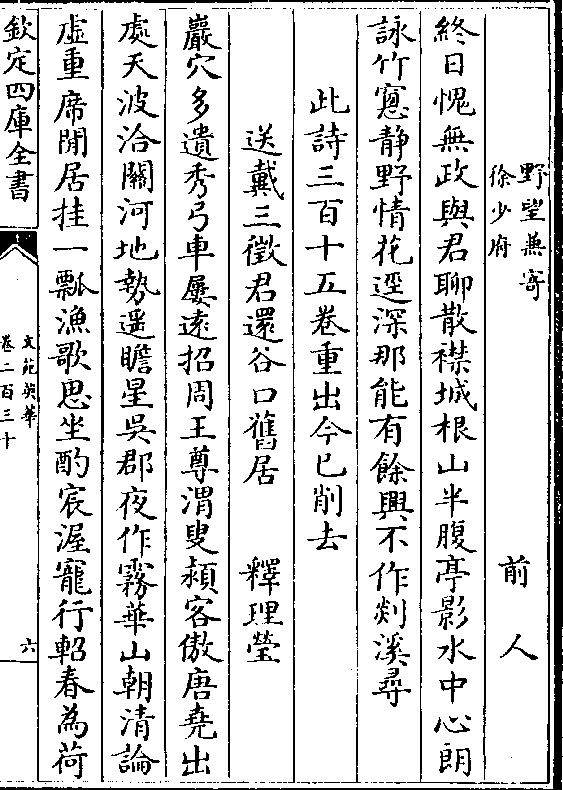 野望兼寄
徐少府
前人
終日愧無政與君聊散襟城根山半腹亭影水中心朗
詠竹窻静野情花逕深那能有餘興不作剡溪尋
此詩三百十五卷重出今已削去
送戴三徵君還谷口舊居 釋理瑩
巖穴多遺秀弓車屢遠招周王尊渭叟潁客傲唐堯出
處天波洽關河地勢遥瞻星吳郡夜作霧華山朝清論
虚重席閒居挂一瓢漁歌思坐酌宸渥寵行軺春為荷
欽定四庫全書
文苑英華
卷二百三十
六